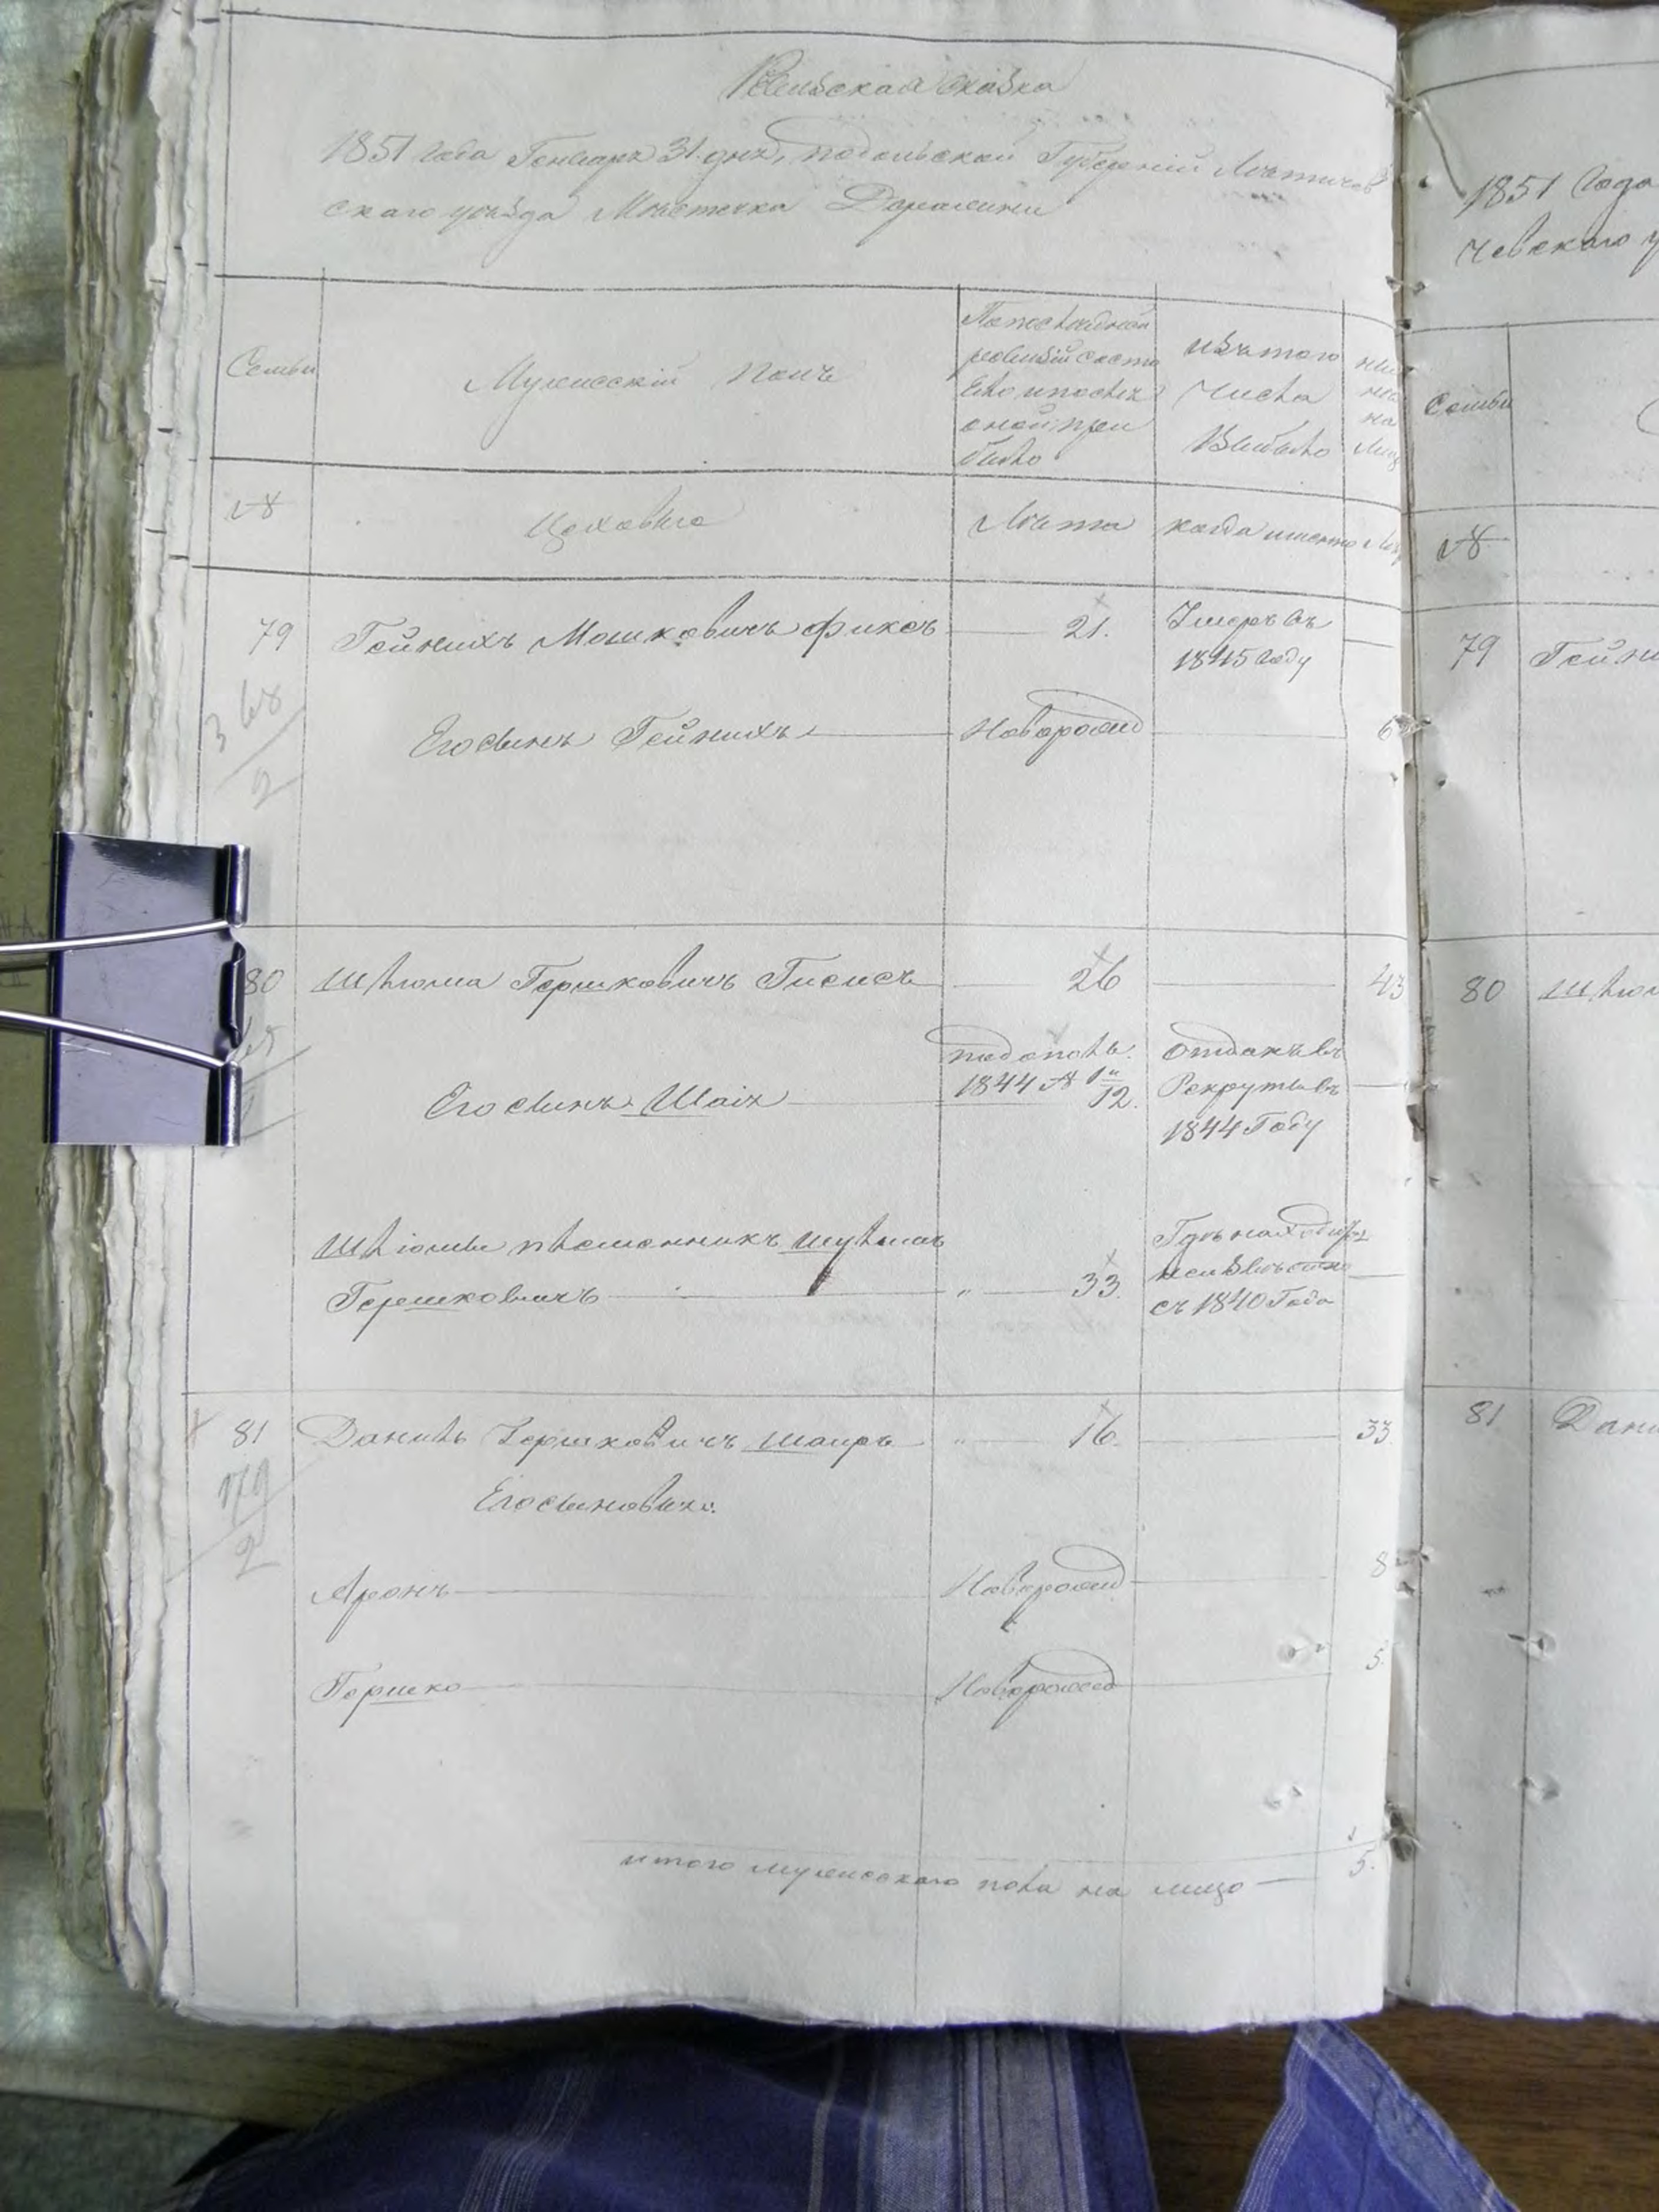 Ревизская сказка
1851 года Генваря 31 дня, подольской Губерніи Лѣтичев
скаго уѣзда Мѣстечка Деражни
Семьи
Мужескій Полъ
По последней
ревизіи состо
яло и после
оной при
было
изъ того
Числа
Выбыло
Семьи
№
Цеховыя
Лѣта
когда именно
№
79
Гейнихъ Мошковичъ Фиксъ
21.
Умеръ въ
1845 году
Его сынъ Гейнихъ
Новорожд
6
2
80
Шлюма Гершковичъ Гисисъ
26
43
Его сынъ Шаія
1844 № 1
12.
Отданъ въ
Рекруты въ
1844 Году
Шліомы племенникъ Шулимъ
Гершковичъ
" 33.
Гдѣ находится
неизвѣстно
съ 1840 Года
81
Данилъ Гершковичъ Шаиръ
" 16.
33.
179
2
Его сыновья:
Аронъ
Новорожд
8
Гершко
Новорожд
5.
итого мужескаго пола на лицо
5.
1851 Года
чевскаго у
79 Гейни
80 Шлюм
81 Дани